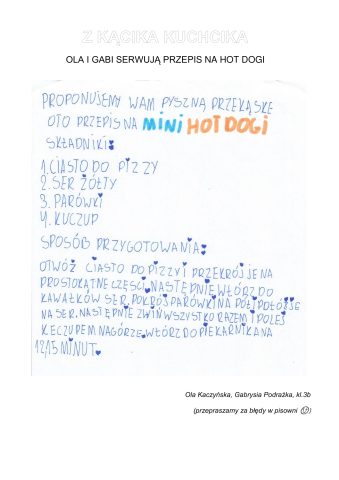 Z KĄCIKA KUCHCIKA
OLA I GABI SERWUJĄ PRZEPIS NA HOT DOGI
PROPONUJEMY WAM PYSZNĄ PRZEKĄSKE
OTO PRZEPIS NA MINI HOT DOGI
SKŁADNIKI:
1. CIASTO DO PIZZY
2. SER ŻÓŁTY
3. PARÓWKI
4. KUCZUP
SPOSÓB PRZYGOTOWANIA:
OTWÓŻ CIASTO DO PIZZY I PRZEKRÓJ JE NA
PROSTOKĄTNE CZĘŚCI. NASTĘPNIE WŁÓRZ DO
KAWAŁKÓW SER. POKRÓJ PARÓWKI NA PÓŁ I POŁÓŻ JE
NA SER. NASTĘPNIE ZWIŃ WSZYSTKO RAZEM I POLEJ
KECZUPEM NAGÓRZE. WŁÓRZ DO PIEKARNIKA NA
12,15 MINUT.
Ola Kaczyńska, Gabrysia Podrażka, kl.3b
(przepraszamy za błędy w pisowni ☺)